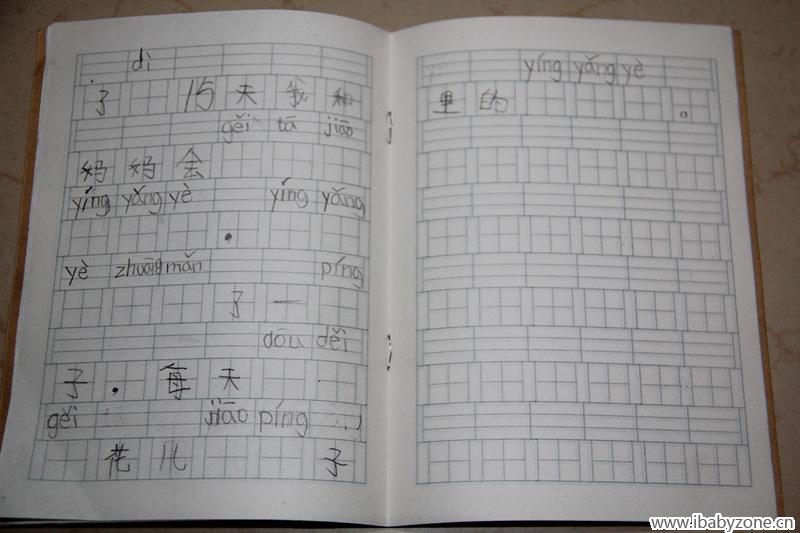 dì
了 15 天 我 和
gěi tā jiāo
妈 妈 会
yíng yǎng yè yíng yǎng
，
yè zhuāng mǎn píng
了 一
dōu děi
子 ， 每 天
gěi jiāo píng
花 儿 子
yíng yǎng yè
里 的 。
www.ibabyzone.cn